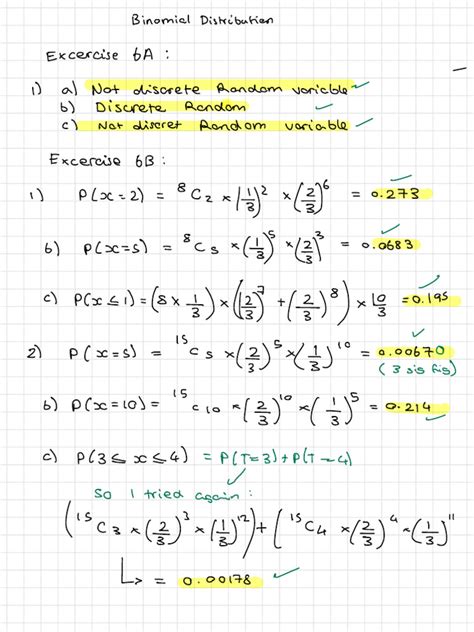 Binomial Distribution
Excercise 6A :
1) a) Not discrete Random variable ✓
b) Discrete Random ✓
c) Not discret Random variable ✓
Excercise 6B :
1) P(x=2) = ⁸C₂ × (1/3)² × (2/3)⁶ = 0.273 ✓
b) P(x=5) = ⁸C₅ × (1/3)⁵ × (2/3)³ = 0.0683 ✓
c) P(x≤1) = (8 × 1/3) × (2/3)⁷ + (2/3)⁸) × 10/3 = 0.195 ✓
2) P(x=5) = ¹⁵C₅ × (2/3)⁵ × (1/3)¹⁰ = 0.00670 ✓
(3 sig fig)
b) P(x=10) = ¹⁵C₁₀ × (2/3)¹⁰ × (1/3)⁵ = 0.214 ✓
c) P(3 ≤ x ≤ 4) = P(T=3) + P(T=4)
So I tried again : ✓
(¹⁵C₃ × (2/3)³ × (1/3)¹²) + (¹⁵C₄ × (2/3)⁴ × (1/3)¹¹
↳ = 0.00178 ✓